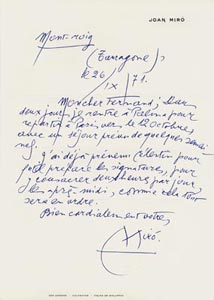 JOAN MIRÓ
Mont-roig
(Tarragone)
le 26/IX/71.
Mon cher Fernand; Dans
deux jours, je rentre à Palma pour
repartir à Paris vers le 12 Octobre,
avec un séjour prévu de quelques
j'ai déjà prévenu pour
préparer les signatures, pour
y consacrer deux heures par jour
les après-midi, comme cela tout
sera en ordre.
Bien cordialement votre,
Miró.